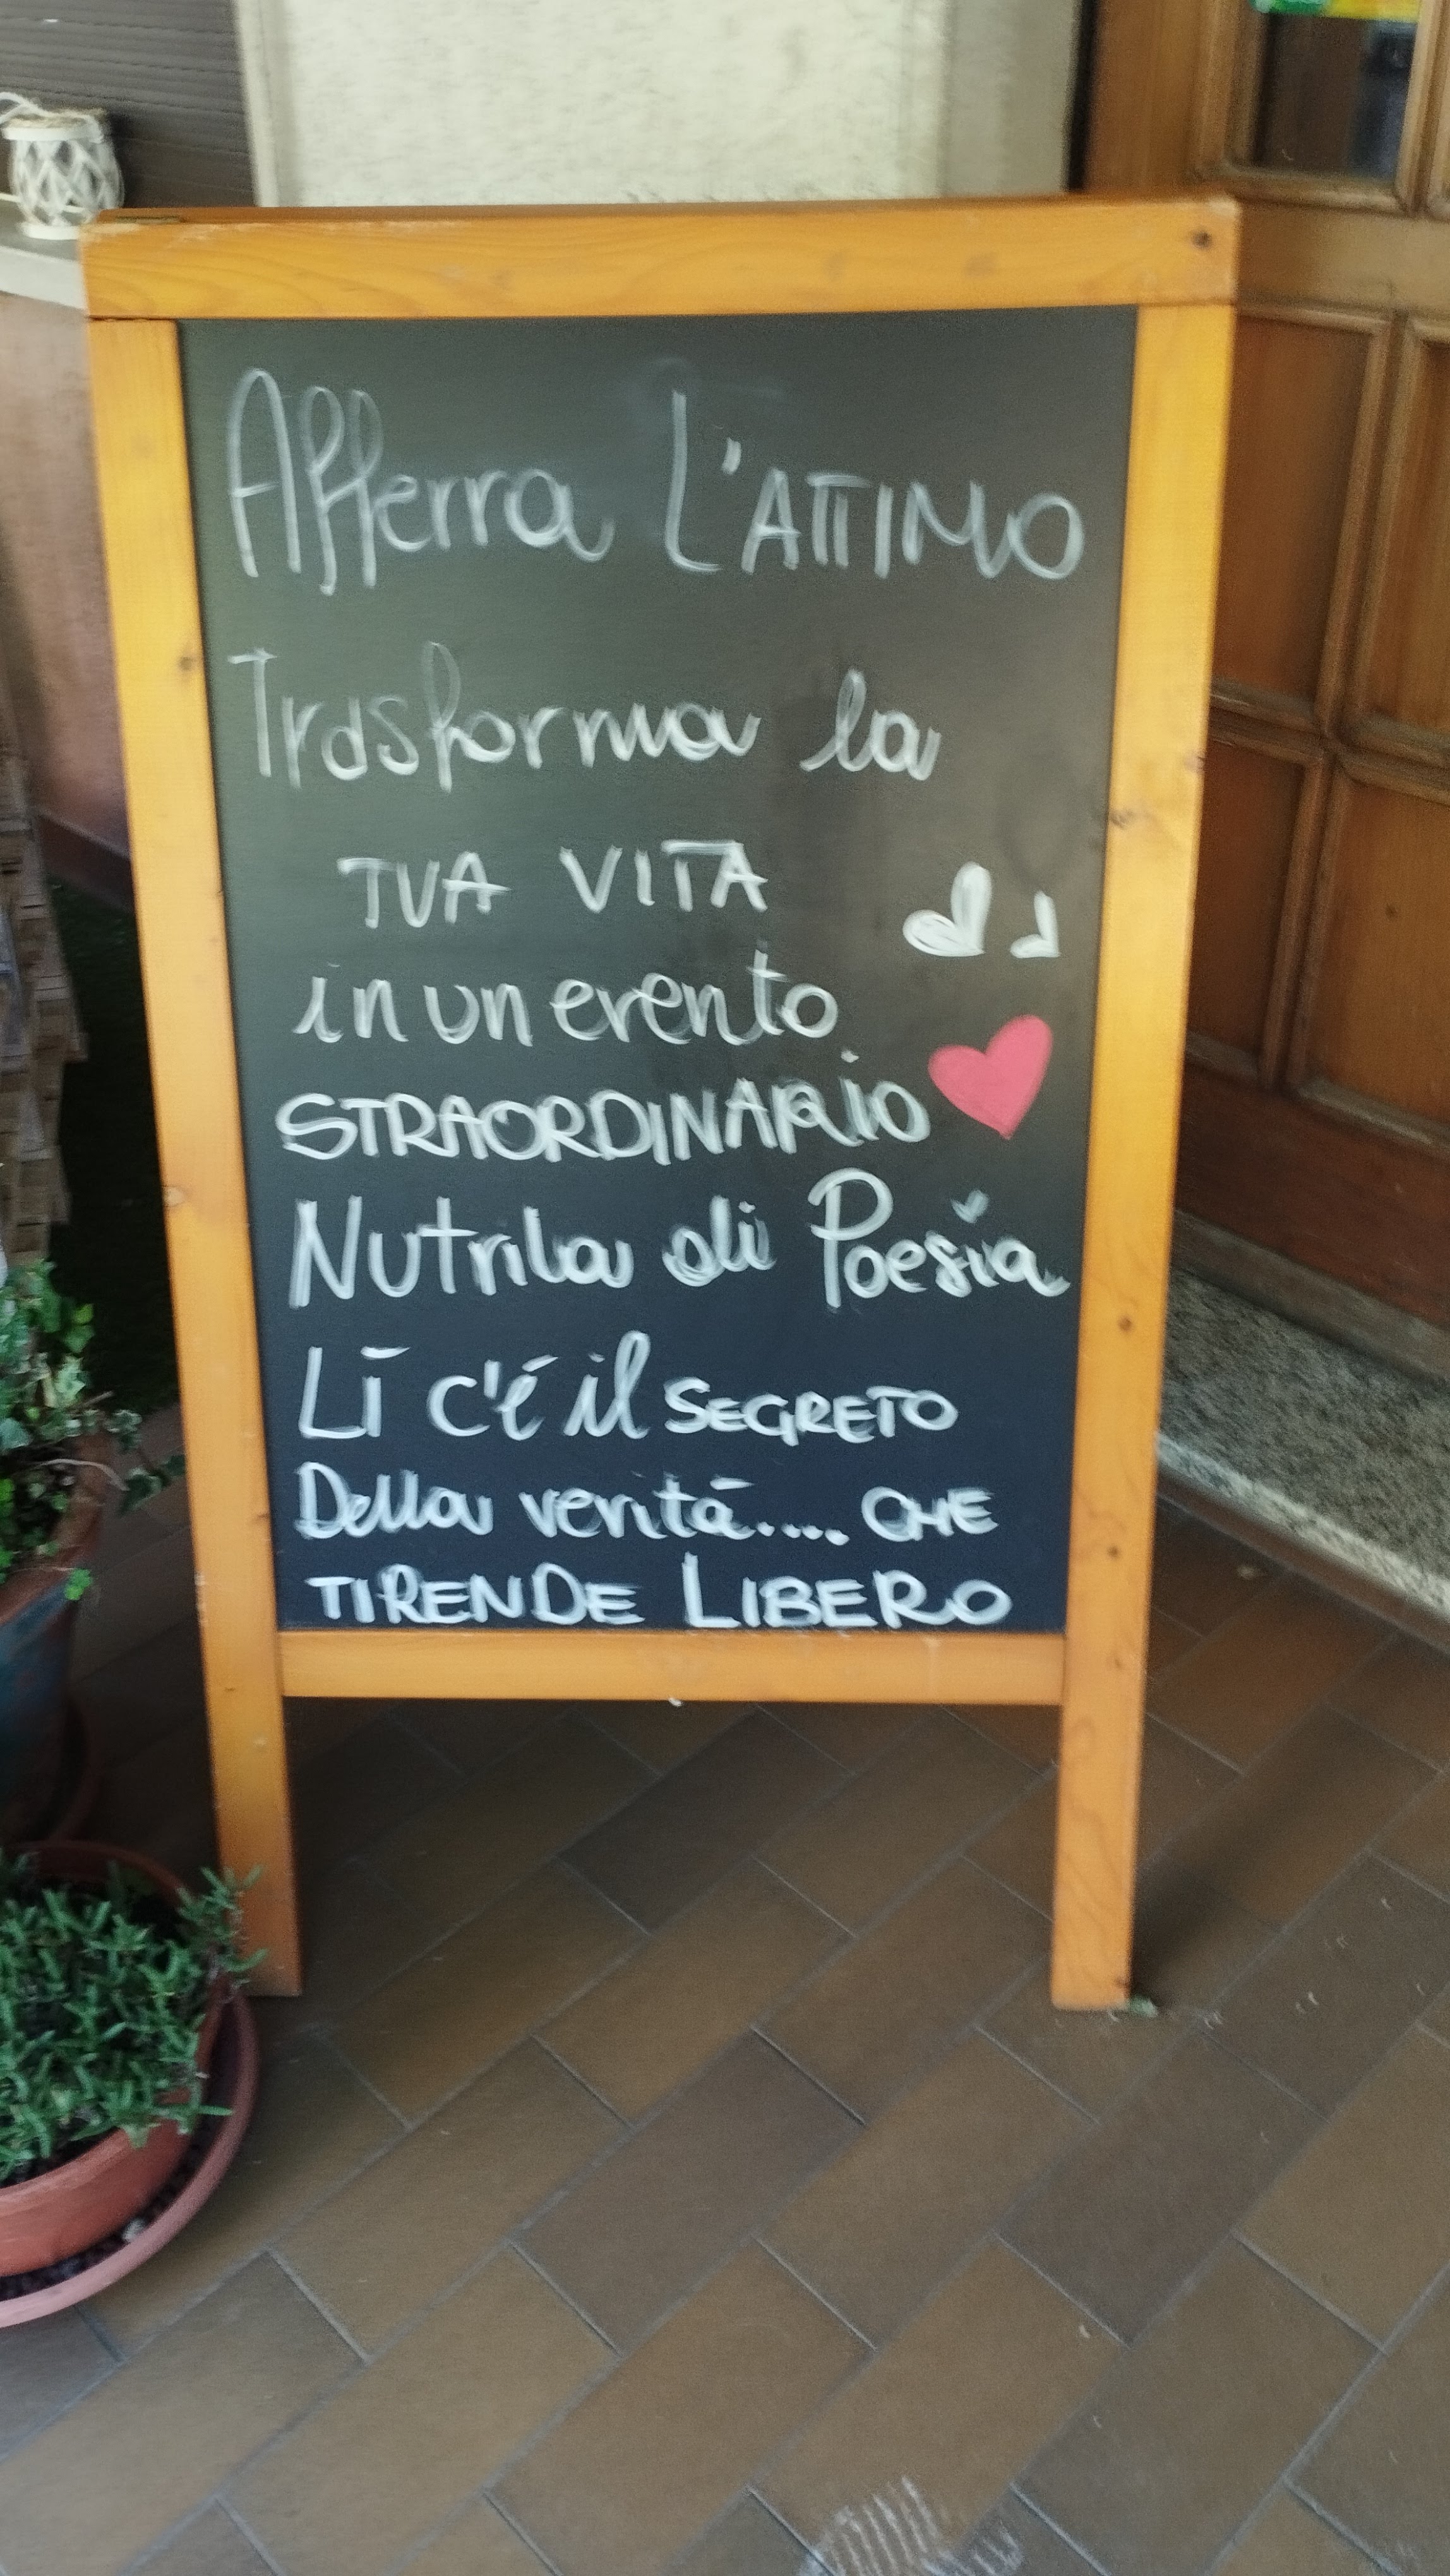 Afferra L'ATTIMO
Trasforma la
TUA VITA
in un evento
STRAORDINARIO
Nutrila di Poesia
Lī c'é il SEGRETO
Della veritā.... CHE
TI RENDE LIBERO